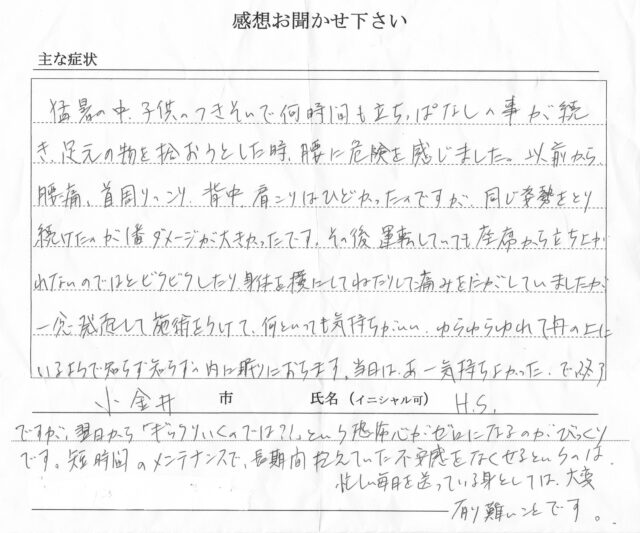 感想お聞かせ下さい
主な症状
猛暑の中、子供のつきそいで何時間も立ちっぱなしの事が続
き、足元の物を拾おうとした時、腰に危険を感じました。以前から
腰痛、首周りのこり、背中、肩こりはひどかったのですが、同じ姿勢をとり
続けたのが1番ダメージが大きかったです。その後運転していても座席から立ち上が
れないのではとビクビクしたり、身体を横にしてねたりして痛みをにがしていましたが
一念発起して施術をうけて、何といっても気持ちがいい、ゆらゆらゆれて舟の上に
いるようで知らず知らずの内に眠りにおちます。当日は、あー気持ちよかった、で終り
小金井 市 氏名(イニシャル可) H.S.
ですが、翌日から「ギックリいくのでは?!」という恐怖心がゼロになるのがびっくり
です。短時間のメンテナンスで、長期間抱えていた不安感をなくせるというのは、
忙しい毎日を送っている身としては、大変
有り難いことです。